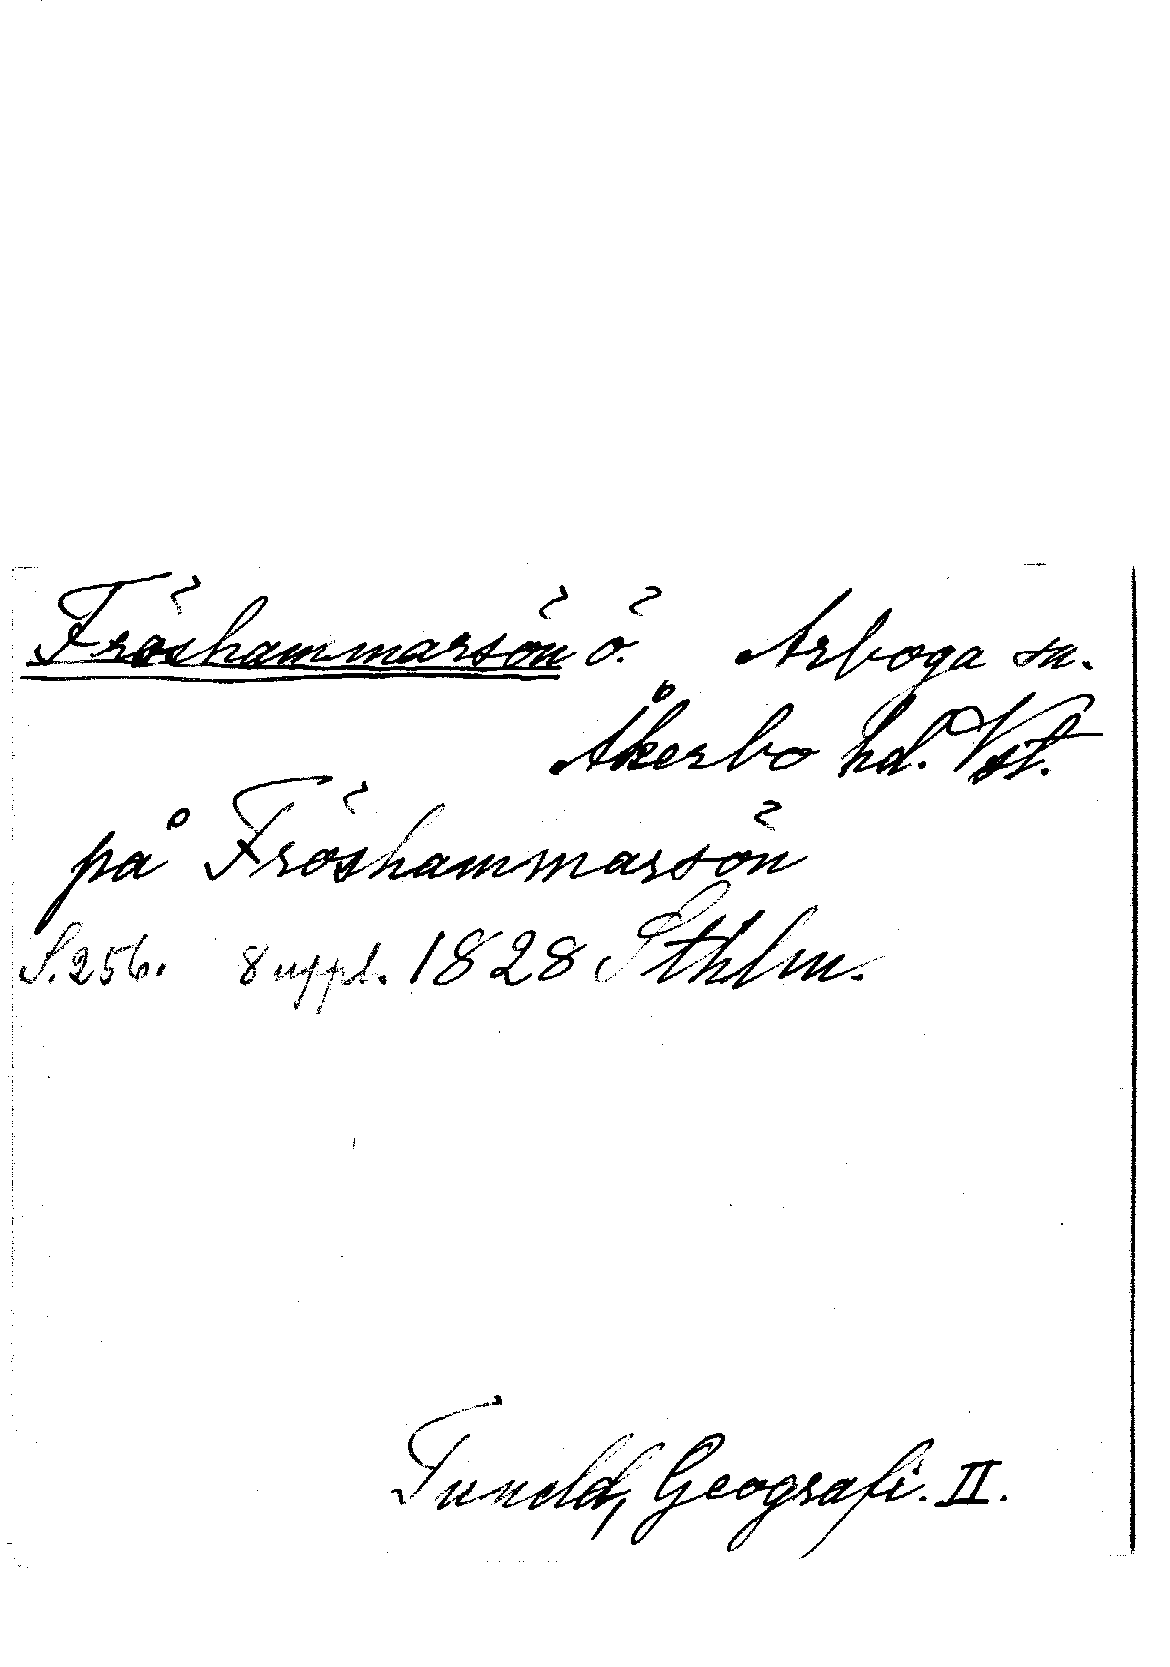 Fröshammarsön ö. Arboga sn.
Åkerbo hd. Vstl.
på Fröshammarsön
S. 256. 8 uppl. 1828 Sthlm.
Tuneld, Geografi. II.